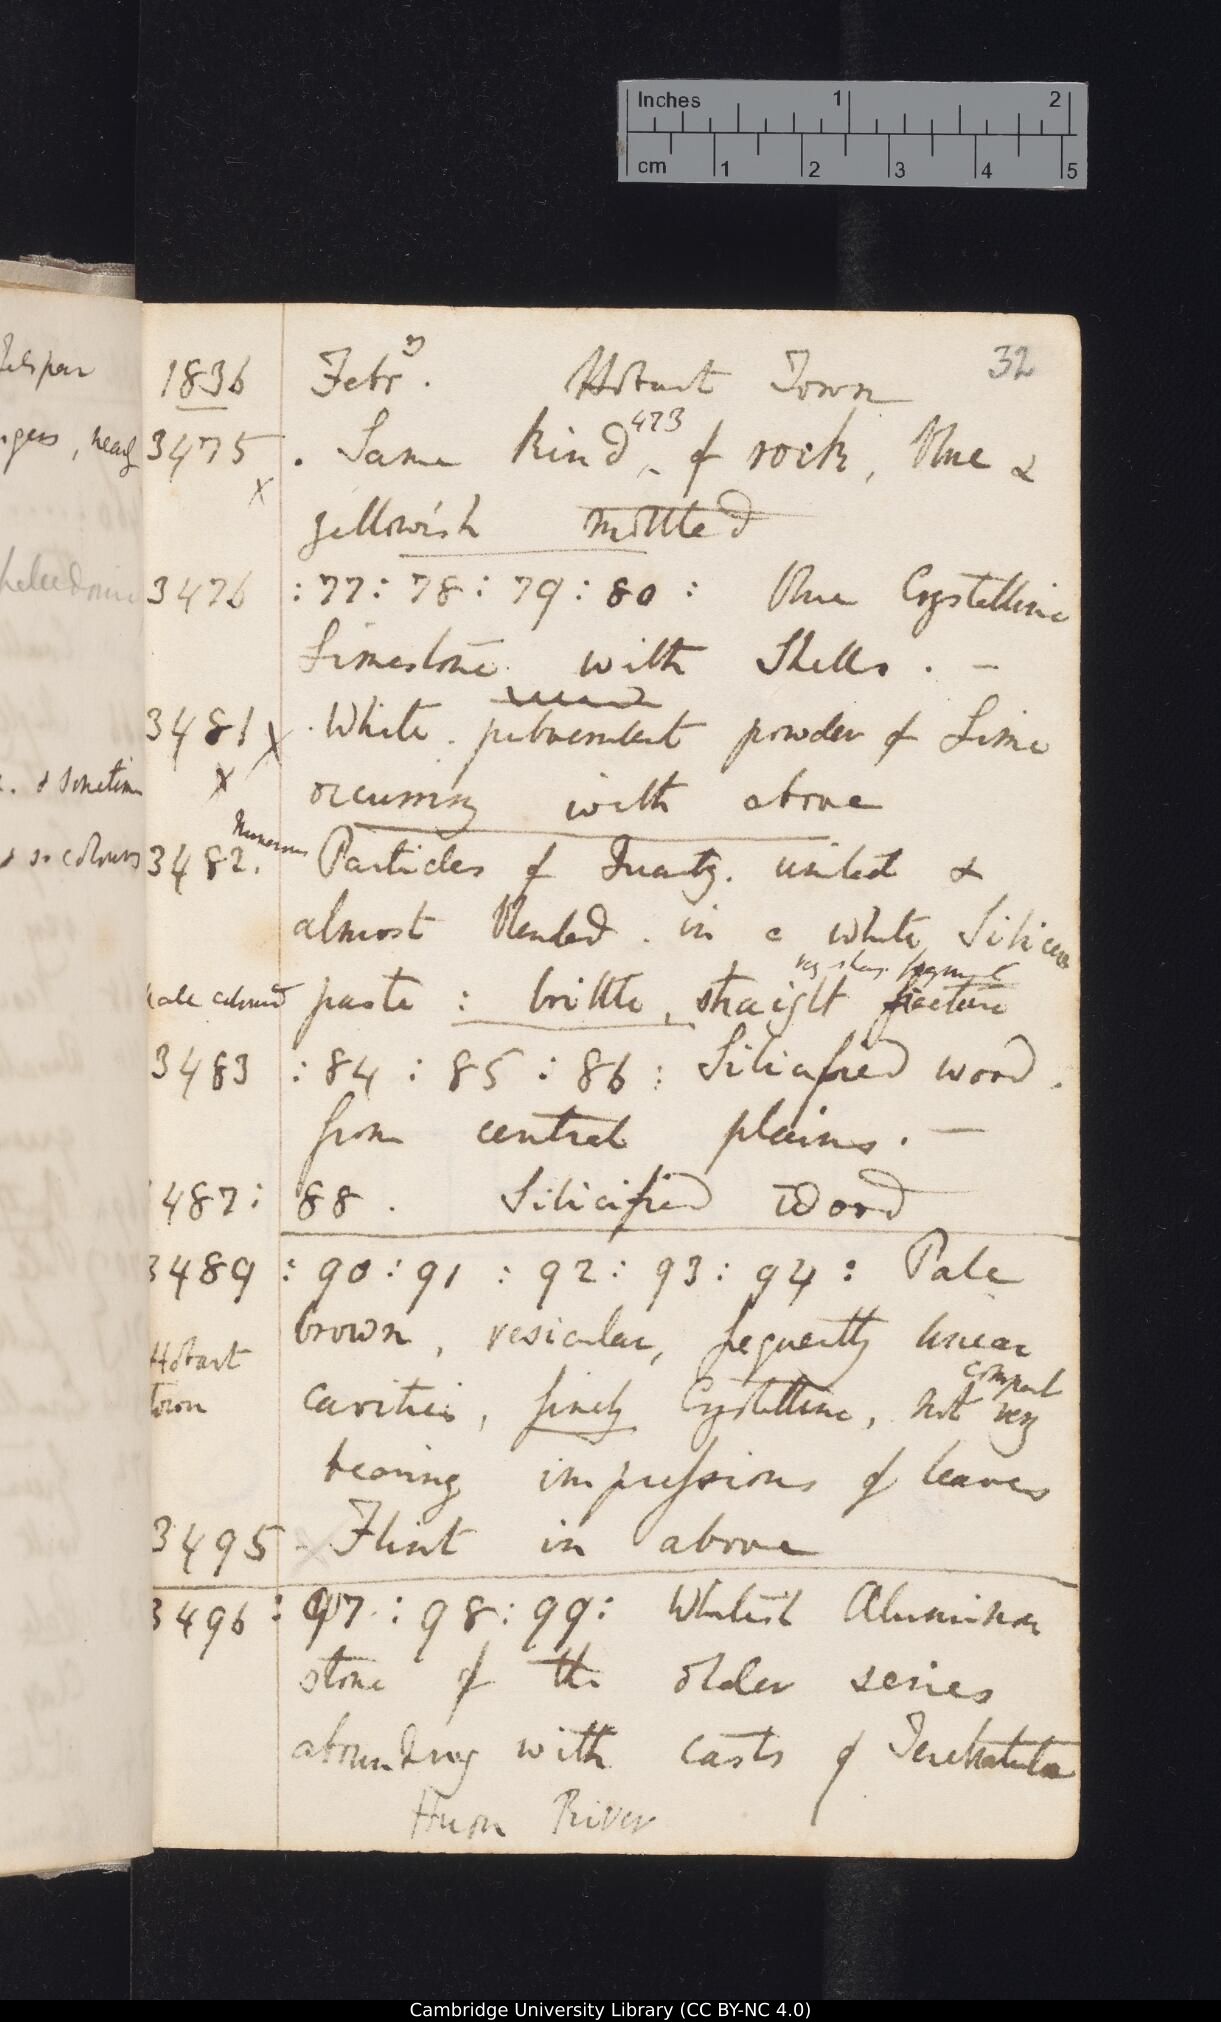 Inches 1 2
cm 1 2 3 4 5
32
1836 Febry. Hobart Town
3475 . Same kind 473 of rock, Blue &
X
yellowish mottled
3476 : 77 : 78 : 79 : 80 : Blue Crystalline
Limestone with Shells . —
3481 X . White . pulverulent powder of Lime
X occurring with above
Numerous
3482. Particles of Quartz. united &
almost blended . in a white Siliceous
very sharp fragment
pale coloured paste : brittle, straight fracture
3483 : 84 : 85 : 86 : Silicified wood .
from central plains . —
487 : 88 . Silicified Wood
3489 : 90 : 91 : 92 : 93 : 94 : Pale
brown, vesicular, frequently linear
Hobart
compact
town cavities, finely Crystalline, not very
bearing impressions of leaves
3495 - Flint in above
3496 : 97 : 98 : 99 : Whitish Aluminous
stone of the older series
abounding with casts of Terebratula
Huon River
felspar
, nearly
. & sometime
& so colours
Cambridge University Library (CC BY-NC 4.0)